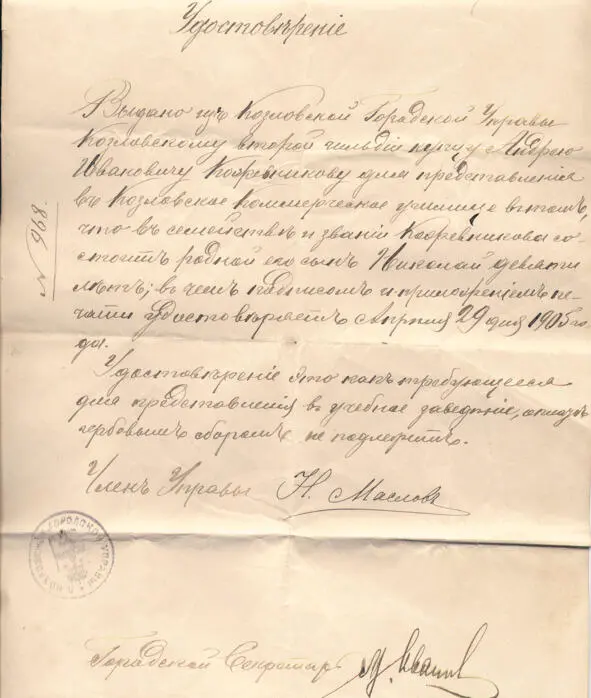 Удостовѣреніе
Выдано изъ Козловской Городской Управы
Козловскому второй гильдіи купцу Андрею
Ивановичу Кожевникову для представленія
въ Козловское Коммерческое училище въ томъ,
что въ семействѣ и званіи Кожевникова со-
стоитъ родной его сынъ Николай девяти
лѣтъ; въ чемъ подписомъ и приложеніемъ пе-
чати удостовѣряетъ Апрѣля 29 дня 1905 го-
да.
Удостовѣреніе это какъ требующееся
для представленія въ учебное заведеніе, оплатѣ
гербовымъ сборомъ не подлежитъ.
№ 968.
Членъ Управы Н. Масловъ
ГОРОДСКОЙ УПРАВЫ
Городской Секретарь